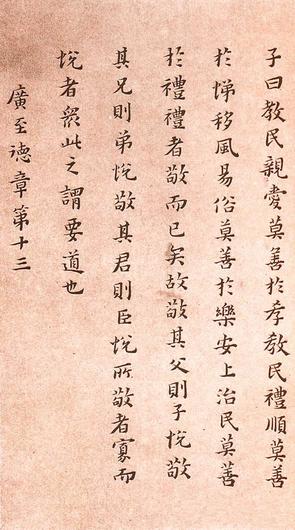 子曰教民親愛莫善於孝教民禮順莫善
於悌移風易俗莫善於樂安上治民莫善
於禮禮者敬而已矣故敬其父則子悅敬
其兄則弟悅敬其君則臣悅所敬者寡而
悅者衆此之謂要道也
廣至德章第十三